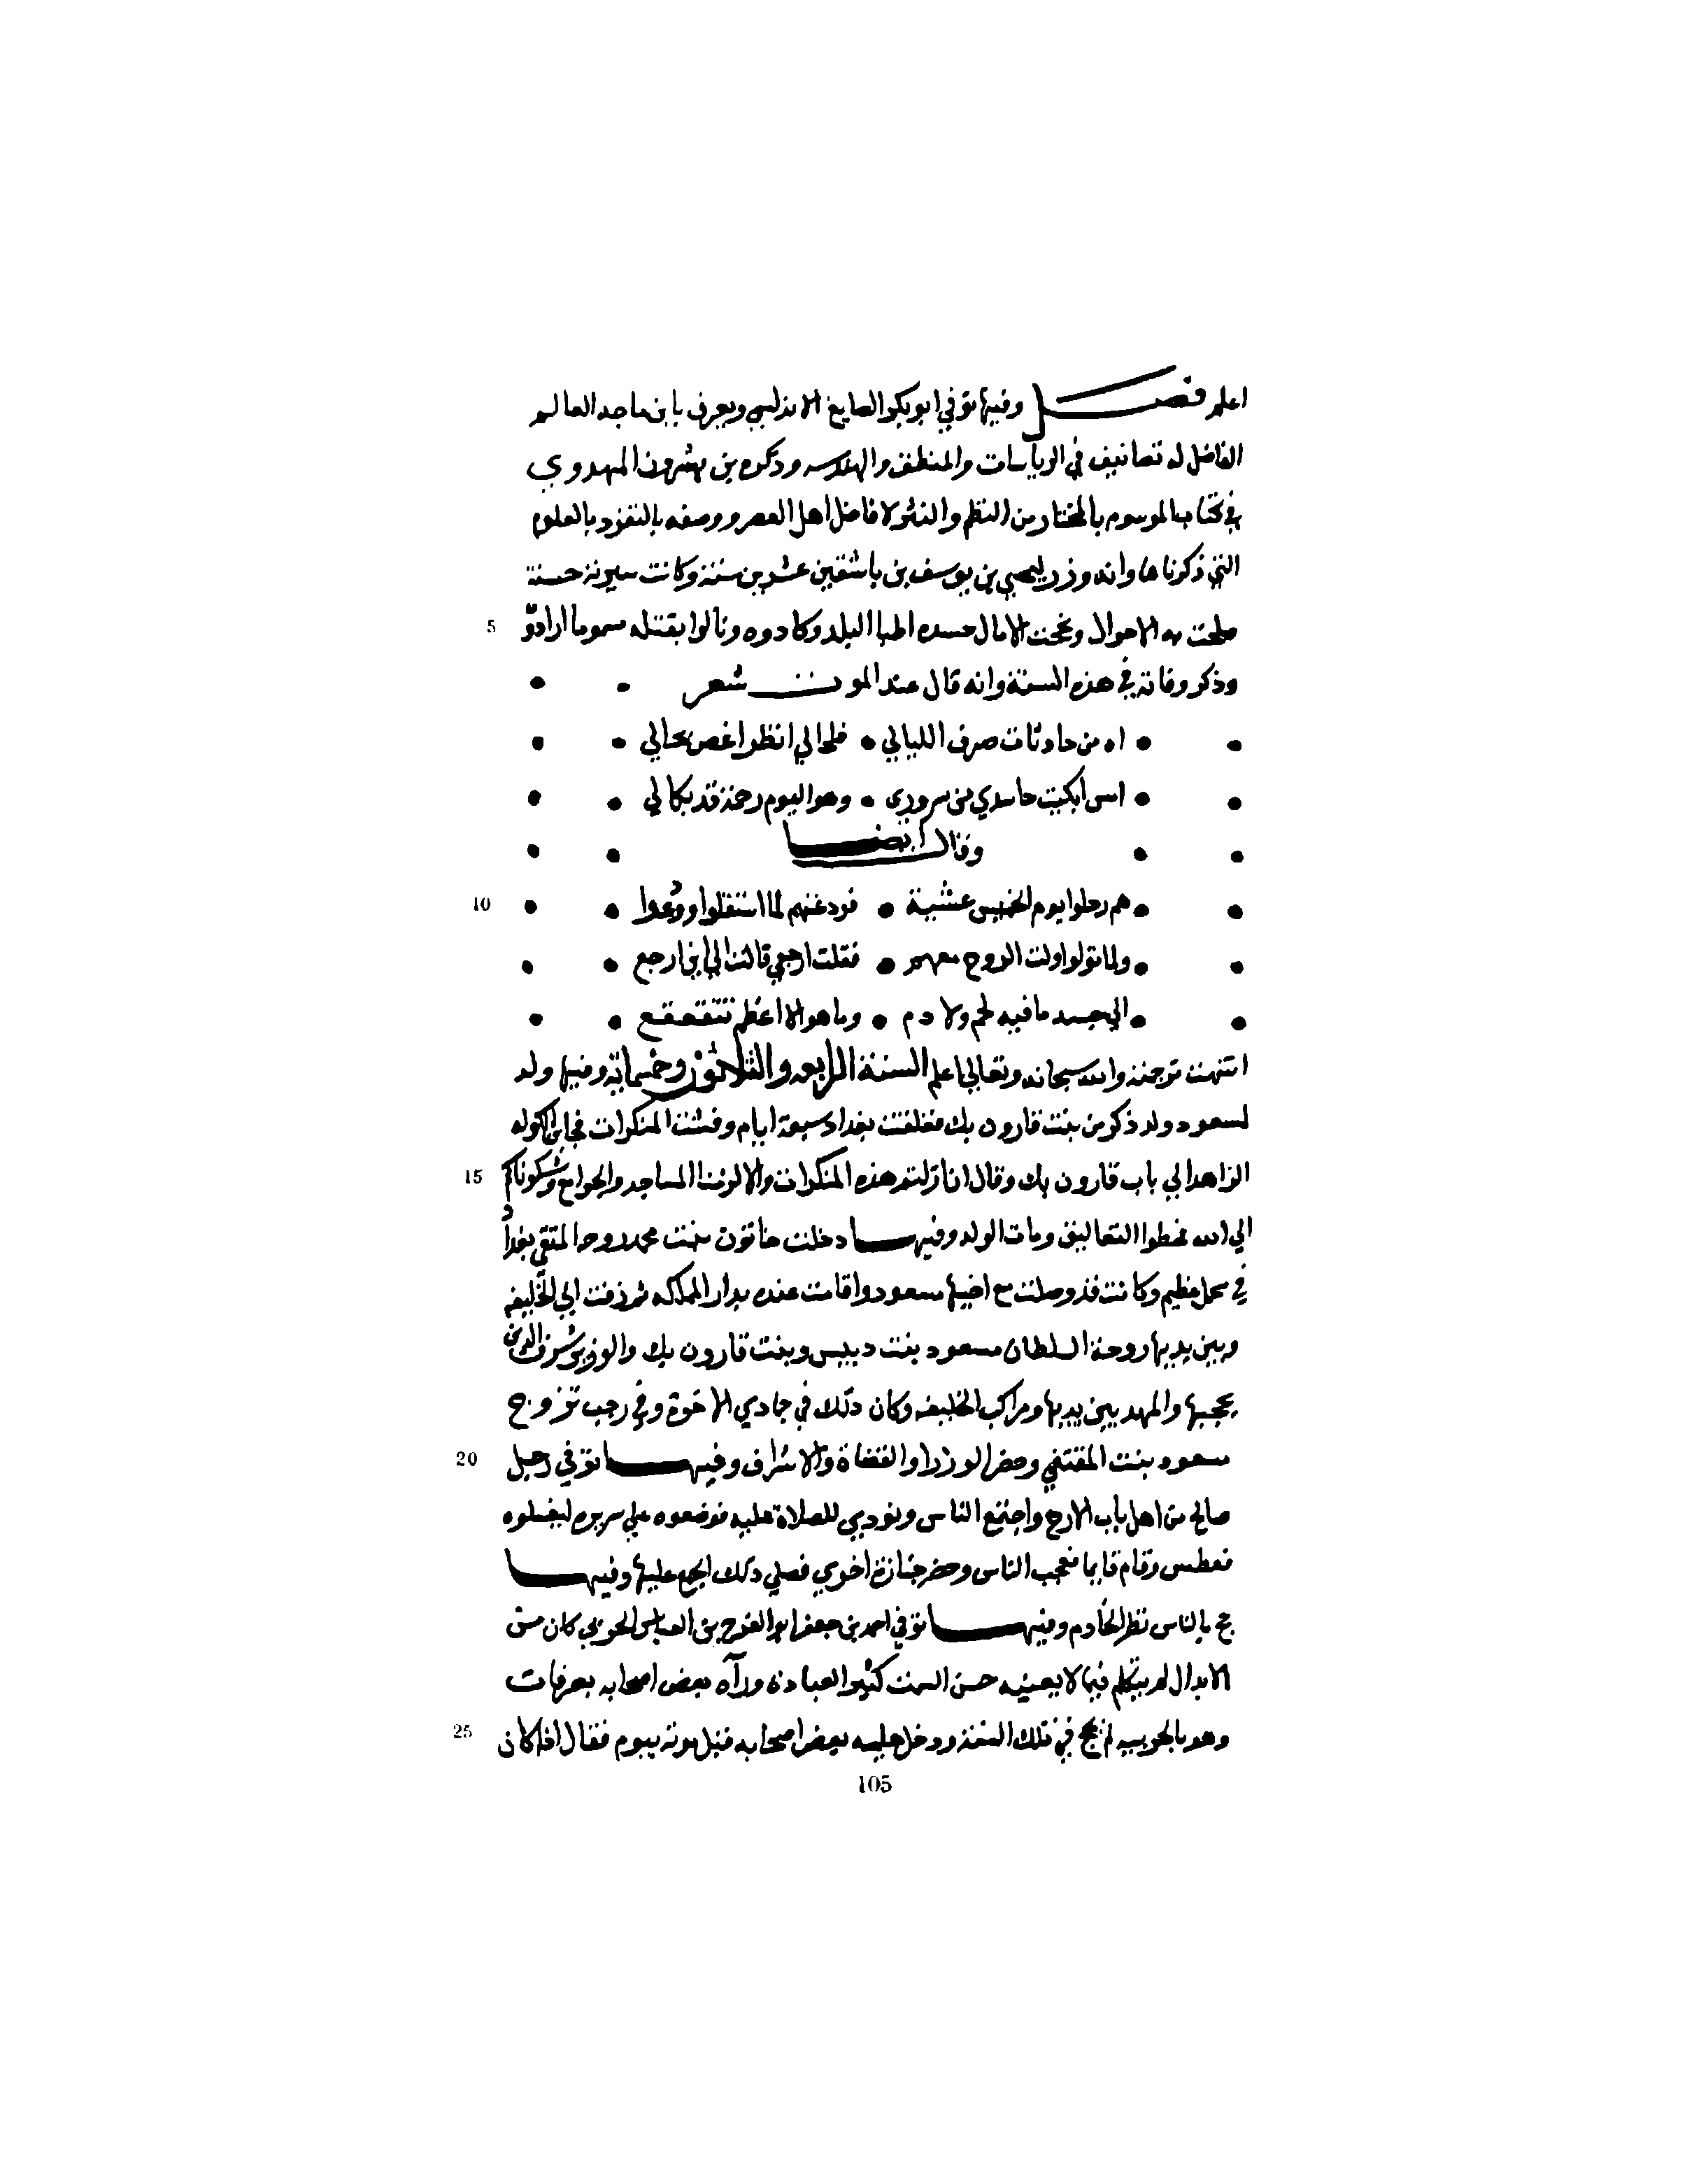 اعلم فصل وفيها توفي ابو بكر الصايغ الاندلسي ويعرف بابن ماجه العالم
الفاضل له تصانيف في الرياسات والمنطق والهندسه وذكره بن بشرون المهدوي
في كتابه الموسوم بالمختار من النظم والنثر لافاضل اهل العصر ووصفه بالتفرد بالعلوم
التي ذكرناها وانه وزر ليحيي بن يوسف بن ياشقين عشرين سنة وكانت سيرته حسنة
5 صلحت به الاحوال ونجحت الامال حسده اطبا البلد وكادوه ونالوا بقتله مسموما ارادوا
وذكر وفاته في هذه السنة وانه قال عند الموت شعر
اه من حادثات صرف الليالي • فلحالي انظر اغص بحالي
امس ابكيت حاسدي من سروري • وهو اليوم رحمة قد بكا لي
وقال ايضا
10 هم رحلوا يوم الخميس عشية • فودعتهم لما استقلوا وودعوا
ولما تولوا ولت الروح معهم • فقلت ارجعي قالت الي اين ارجع
الي جسد ما فيه لحم ولا دم • وما هو الا اعظم تتقعقع
انتهت ترجمته والله سبحانه وتعالي اعلم السنة الرابعه والثلاثون وخمسماية وفيها ولد
لمسعود ولد ذكر من بنت قارون بك فغلقت بغداد سبعة ايام وفشت المنكرات فجا ابن الكوله
15 الزاهد الي باب قارون بك وقال ان ازلتم هذه المنكرات والا لزمنا المساجد والجوامع وشكوناكم
الي الله فحطوا التعاليق ومات الولد وفيها دخلت خاتون بنت محمد زوجة المتقي بغداد
في محمل عظيم وكانت قد وصلت مع اخيها مسعود واقامت عنده بدار المملكه ثم زفت الي الخليفه
وبين يديها زوجة السلطان مسعود بنت دبيس وبنت قارون بك والوزير شرف الدين
يحجبها والمهد بين يديها ومراكب الخليفه وكان ذلك في جمادي الاخرة وفي رجب تزوج
20 مسعود بنت المقتفي وحضر الوزرا والقضاة والاشراف وفيها توفي رجل
صالح من اهل باب الازج واجتمع الناس ونودي للصلاة عليه فوضعوه علي سريره ليغسلوه
فعطس وقام قايما فعجب الناس وحضر جنازة اخري فصلي ذلك الجمع عليها وفيها
حج بالناس نظر الخادم وفيها توفي احمد بن جعفر ابو الفرج بن العباس الحربي كان من
الابدال لم يتكلم فيما لا يعنيه حسن السمت كثير العبادة ورآه بعض اصحابه بعرفات
25 وهو بالحربيه لم يحج في تلك السنة ودخل عليه بعض اصحابه قبل موته بيوم فقال اذا كان
105